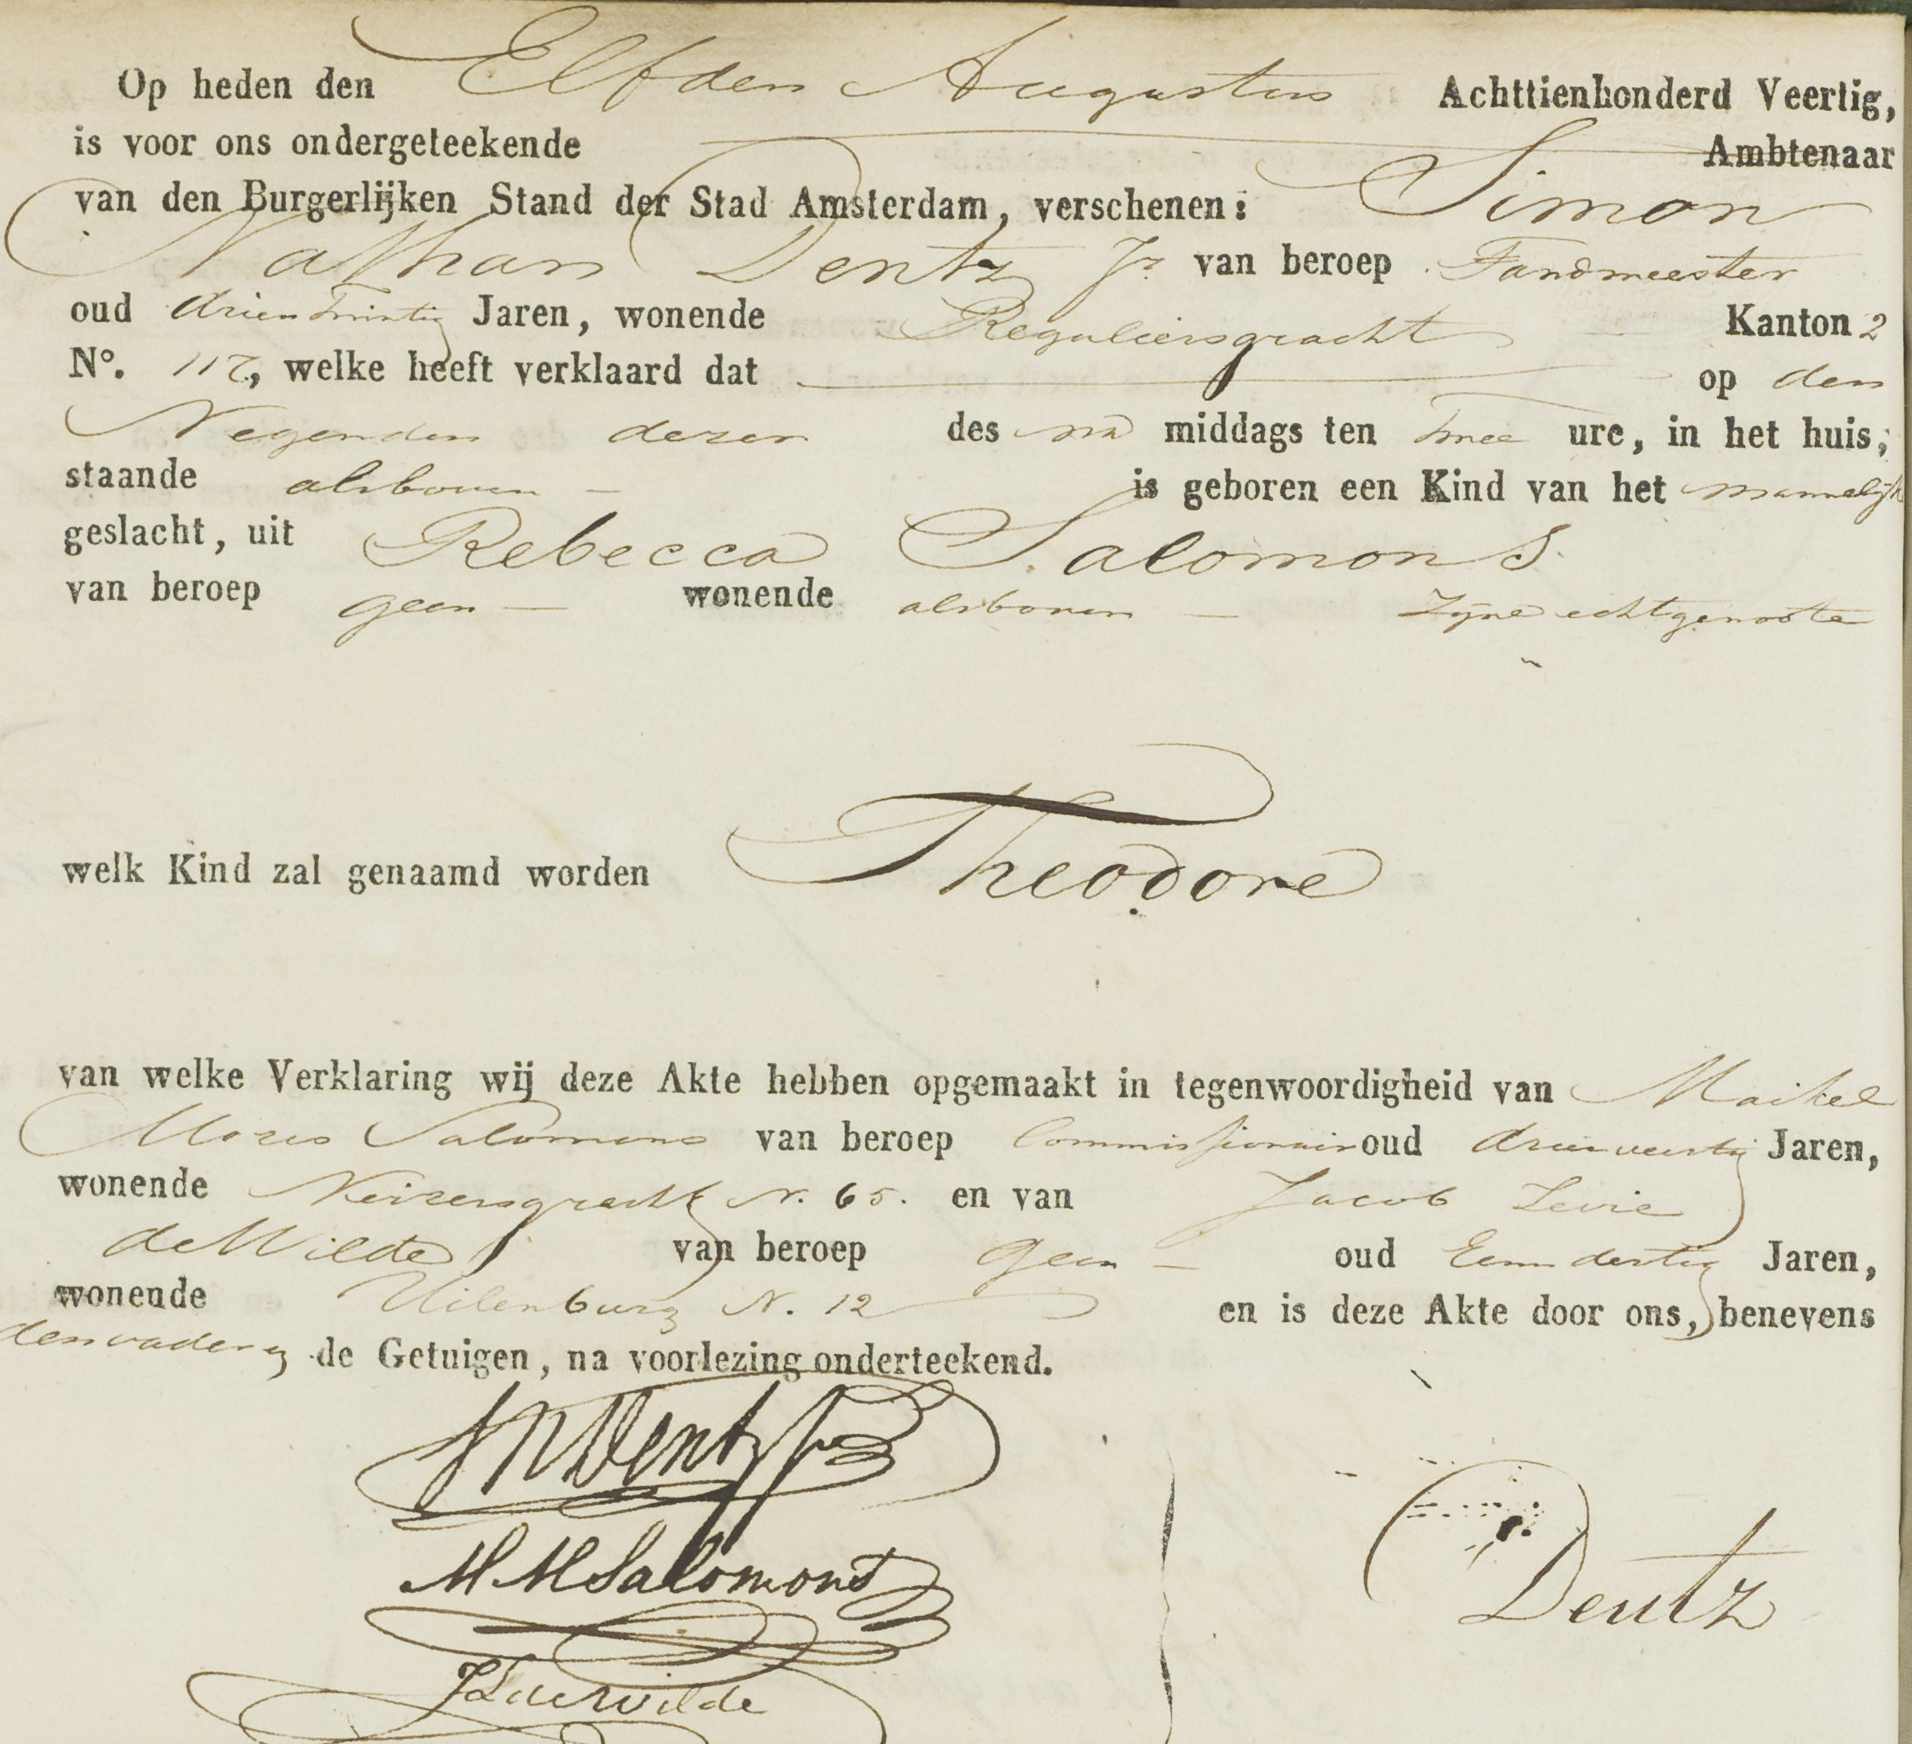 Op heden den Elfden Augustus Achttienhonderd Veertig,
is voor ons ondergeteekende Ambtenaar
van den Burgerlijken Stand der Stad Amsterdam, verschenen: Simon
Nathan Dentz Jr. van beroep Tandmeester
oud drieentwintig Jaren, wonende Reguliersgracht Kanton 2
No. 117, welke heeft verklaard dat op den
Negenden dezer des na middags ten twee ure, in het huis,
staande alsboven is geboren een Kind van het mannelijk
geslacht, uit Rebecca Salomons.
van beroep geen wonende alsboven zijne echtgenoote
welk Kind zal genaamd worden Theodore
van welke Verklaring wij deze Akte hebben opgemaakt in tegenwoordigheid van Maikel
Mozes Salomons van beroep Commissionair oud drieenveertig Jaren,
wonende Keizersgracht N. 65. en van Jacob Levie
de Wilde van beroep geen oud Eenendertig Jaren,
wonende Uilenburg N. 12 en is deze Akte door ons, benevens
den vader en de Getuigen, na voorlezing onderteekend.
SNDentz Jr
M M Salomons
Dentz
JLdeWilde